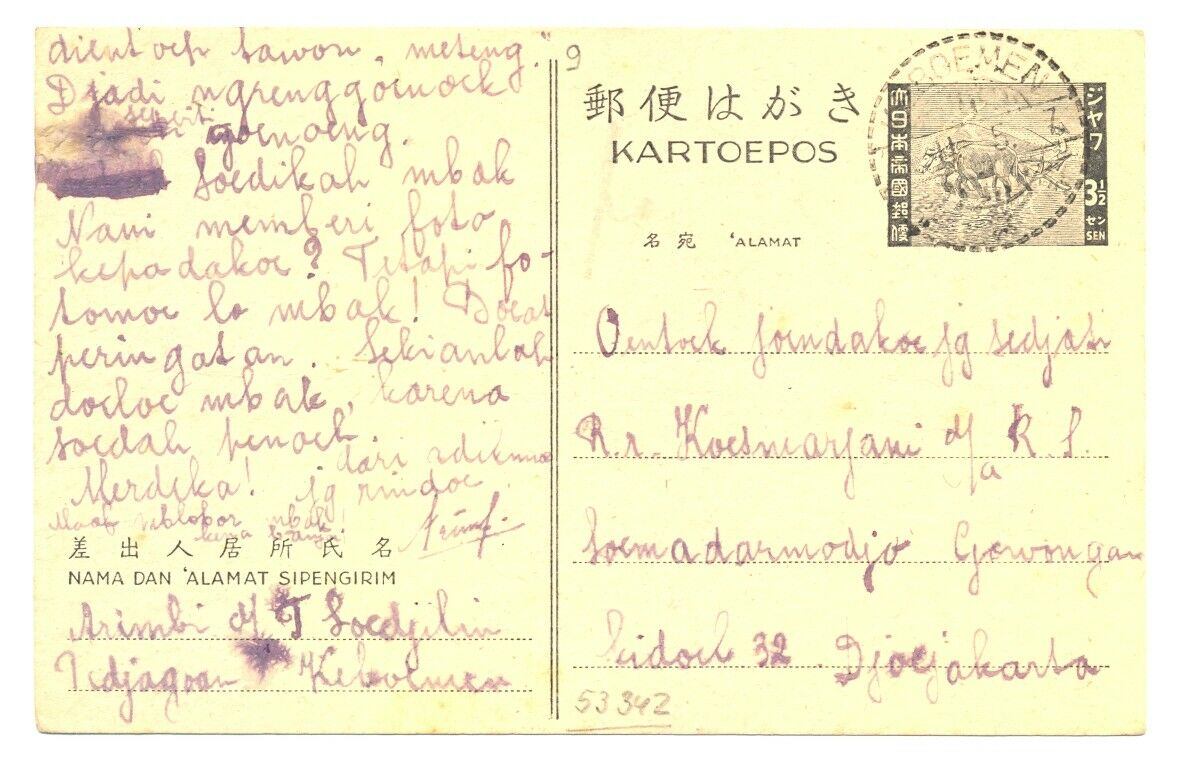 dientoep tawon, meteng."
Djadi ngrenggoenoek
seperti
goenoeng.
Soedikah mbak
Nani memberi foto
kepadakoe? Tetapi fo-
tomoe lo mbak! Boeat
peringatan. Sekianlah
doeloe mbak, karena
soedah penoeh
dari adikmoe
Merdeka! jg rindoe
Maaf mblobor mbak!
kena
差出人居所氏名
NAMA DAN 'ALAMAT SIPENGIRIM
Arimbi d/a T Soedjilin
Tedjagoan Keboemen
9
郵便はがき
KARTOEPOS
名宛 'ALAMAT
大日本帝國郵便
ジャワ
3½
セン
SEN
Oentoek joendakoe jg sedjati
R.r. Koesmarjani d/a R. S.
Soemadarmodjo Gowongan
kidoel 32. Djocjakarta
53342